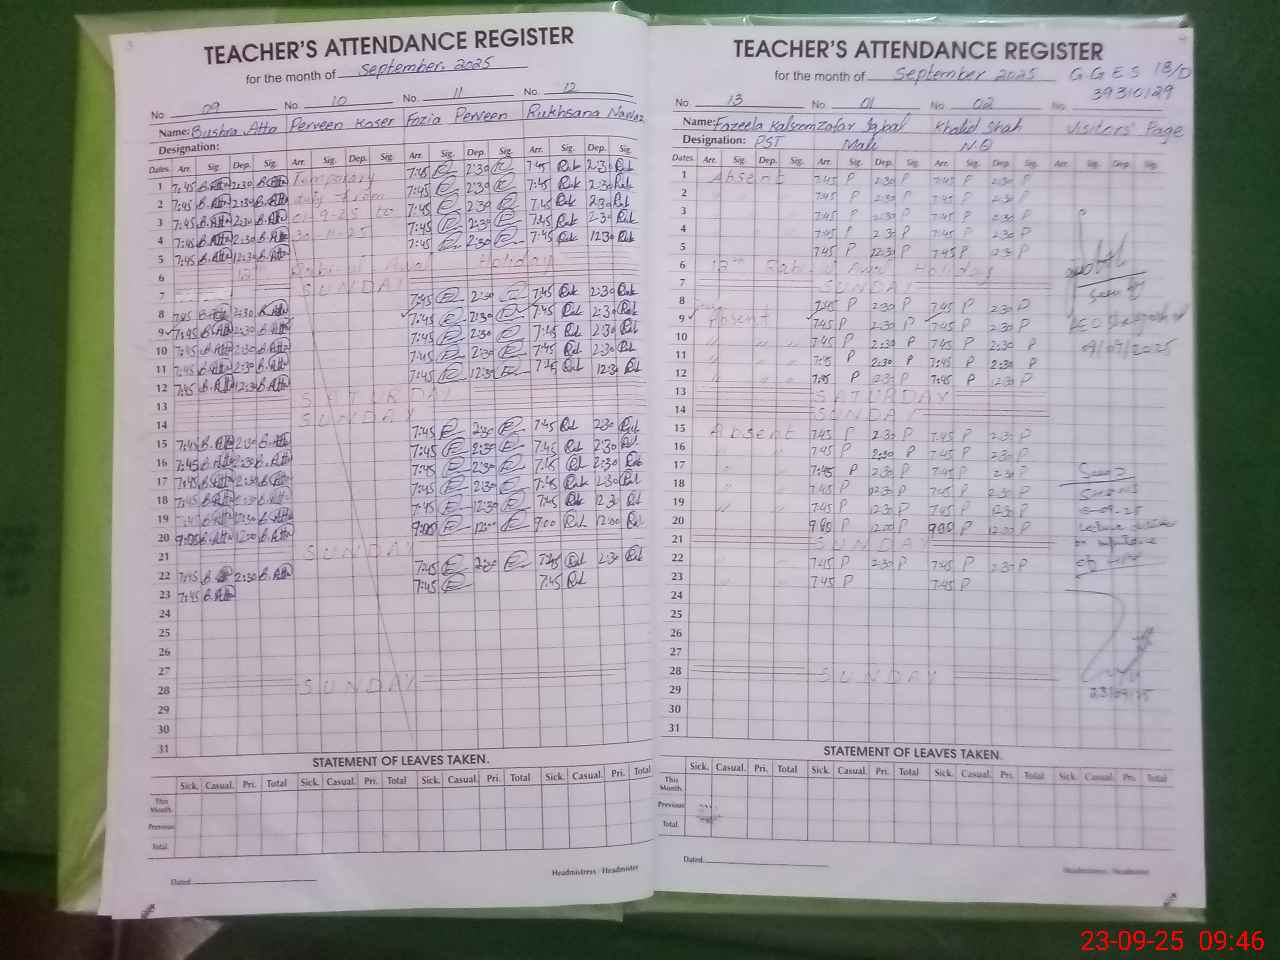 TEACHER'S ATTENDANCE REGISTER
for the month of September. 2025
No. 09 No. 10 No. 11 No. 12
Name: Bushra Atta Perveen Koser Fozia Perveen Rukhsana Nawaz
Designation:
Dates Arr. Sig. Dep. Sig. Arr. Sig. Dep. Sig. Arr. Sig. Dep. Sig. Arr. Sig. Dep. Sig.
1 7:45 B.Atta 2:30 B.Atta Temporary 7:45 2:30 7:45 Ruk 2:30 Ruk
2 7:45 B.Atta 2:30 B.Atta duty from 7:45 2:30 7:45 Ruk 2:30 Ruk
3 7:45 B.Atta 2:30 B.Atta 01-9-25 to 7:45 2:30 7:45 Ruk 2:30 Ruk
4 7:45 B.Atta 2:30 B.Atta 30-11-25 7:45 2:30 7:45 Ruk 2:30 Ruk
5 7:45 B.Atta 12:30 B.Atta 7:45 7:45 Ruk 12:30 Ruk
6 12th Rabi-ul Awal Holiday
7 SUNDAY
8 7:45 B.Atta 2:30 B.Atta 7:45 2:30 7:45 Ruk 2:30 Ruk
9 7:45 B.Atta 2:30 B.Atta 7:45 2:30 7:45 Ruk 2:30 Ruk
10 7:45 B.Atta 2:30 B.Atta 7:45 2:30 7:45 Ruk 2:30 Ruk
11 7:45 B.Atta 2:30 B.Atta 7:45 2:30 7:45 Ruk 2:30 Ruk
12 7:45 B.Atta 12:30 B.Atta 7:45 12:30 7:45 Ruk 12:30 Ruk
13 SATURDAY
14 SUNDAY
15 7:45 B.Atta 2:30 B.Atta 7:45 2:30 7:45 Ruk 2:30 Ruk
16 7:45 B.Atta 2:30 B.Atta 7:45 2:30 7:45 Ruk 2:30 Ruk
17 7:45 B.Atta 2:30 B.Atta 7:45 2:30 7:45 Ruk 2:30 Ruk
18 7:45 B.Atta 2:30 B.Atta 7:45 2:30 7:45 Ruk 2:30 Ruk
19 7:45 B.Atta 12:30 B.Atta 7:45 12:30 7:45 Ruk 12:30 Ruk
20 9:00 B.Atta 12:00 B.Atta 9:00 12:00 9:00 Ruk 12:00 Ruk
21 SUNDAY
22 7:45 B.Atta 2:30 B.Atta 7:45 2:30 7:45 Ruk 2:30 Ruk
23 7:45 B.Atta 7:45 7:45 Ruk
24
25
26
27
28 SUNDAY
29
30
31
STATEMENT OF LEAVES TAKEN.
Sick. Casual. Pri. Total Sick. Casual. Pri. Total Sick. Casual. Pri. Total Sick. Casual. Pri. Total
This Month.
Previous
Total.
Dated
Headmistress / Headmister
TEACHER'S ATTENDANCE REGISTER
for the month of September 2025 GGES 18/D
39310129
No. 13 No. 01 No. 02 No.
Name: Fazeela Kalsoom Zafar Iqbal Khalid Shah Visitors' Page
Designation: PST Mali N.Q
Dates Arr. Sig. Dep. Sig. Arr. Sig. Dep. Sig. Arr. Sig. Dep. Sig. Arr. Sig. Dep. Sig.
1 Absent 7:45 P 2:30 P 7:45 P 2:30 P
2 7:45 P 2:30 P 7:45 P 2:30 P
3 7:45 P 2:30 P 7:45 P 2:30 P
4 7:45 P 2:30 P 7:45 P 2:30 P
5 7:45 P 12:30 P 7:45 P 12:30 P
6 12th Rabi-ul Awal Holiday
7 SUNDAY
8 7:45 P 2:30 P 7:45 P 2:30 P
9 Absent 7:45 P 2:30 P 7:45 P 2:30 P
10 " " " 7:45 P 2:30 P 7:45 P 2:30 P
11 " " " 7:45 P 2:30 P 7:45 P 2:30 P
12 " " " 7:45 P 2:30 P 7:45 P 12:30 P
13 SATURDAY
14 SUNDAY
15 Absent 7:45 P 2:30 P 7:45 P 2:30 P
16 7:45 P 2:30 P 7:45 P 2:30 P
17 7:45 P 2:30 P 7:45 P 2:30 P
18 7:45 P 12:30 P 7:45 P 2:30 P
19 7:45 P 12:30 P 7:45 P 12:30 P
20 9:00 P 12:00 P 9:00 P 12:00 P
21 SUNDAY
22 7:45 P 2:30 P 7:45 P 2:30 P
23 7:45 P 7:45 P
24
25
26
27
28 SUNDAY
29 23/09/25
30
31
STATEMENT OF LEAVES TAKEN.
Sick. Casual. Pri. Total Sick. Casual. Pri. Total Sick. Casual. Pri. Total Sick. Casual. Pri. Total
This Month.
Previous
Total.
Dated
Headmistress / Headmister
23-09-25 09:46